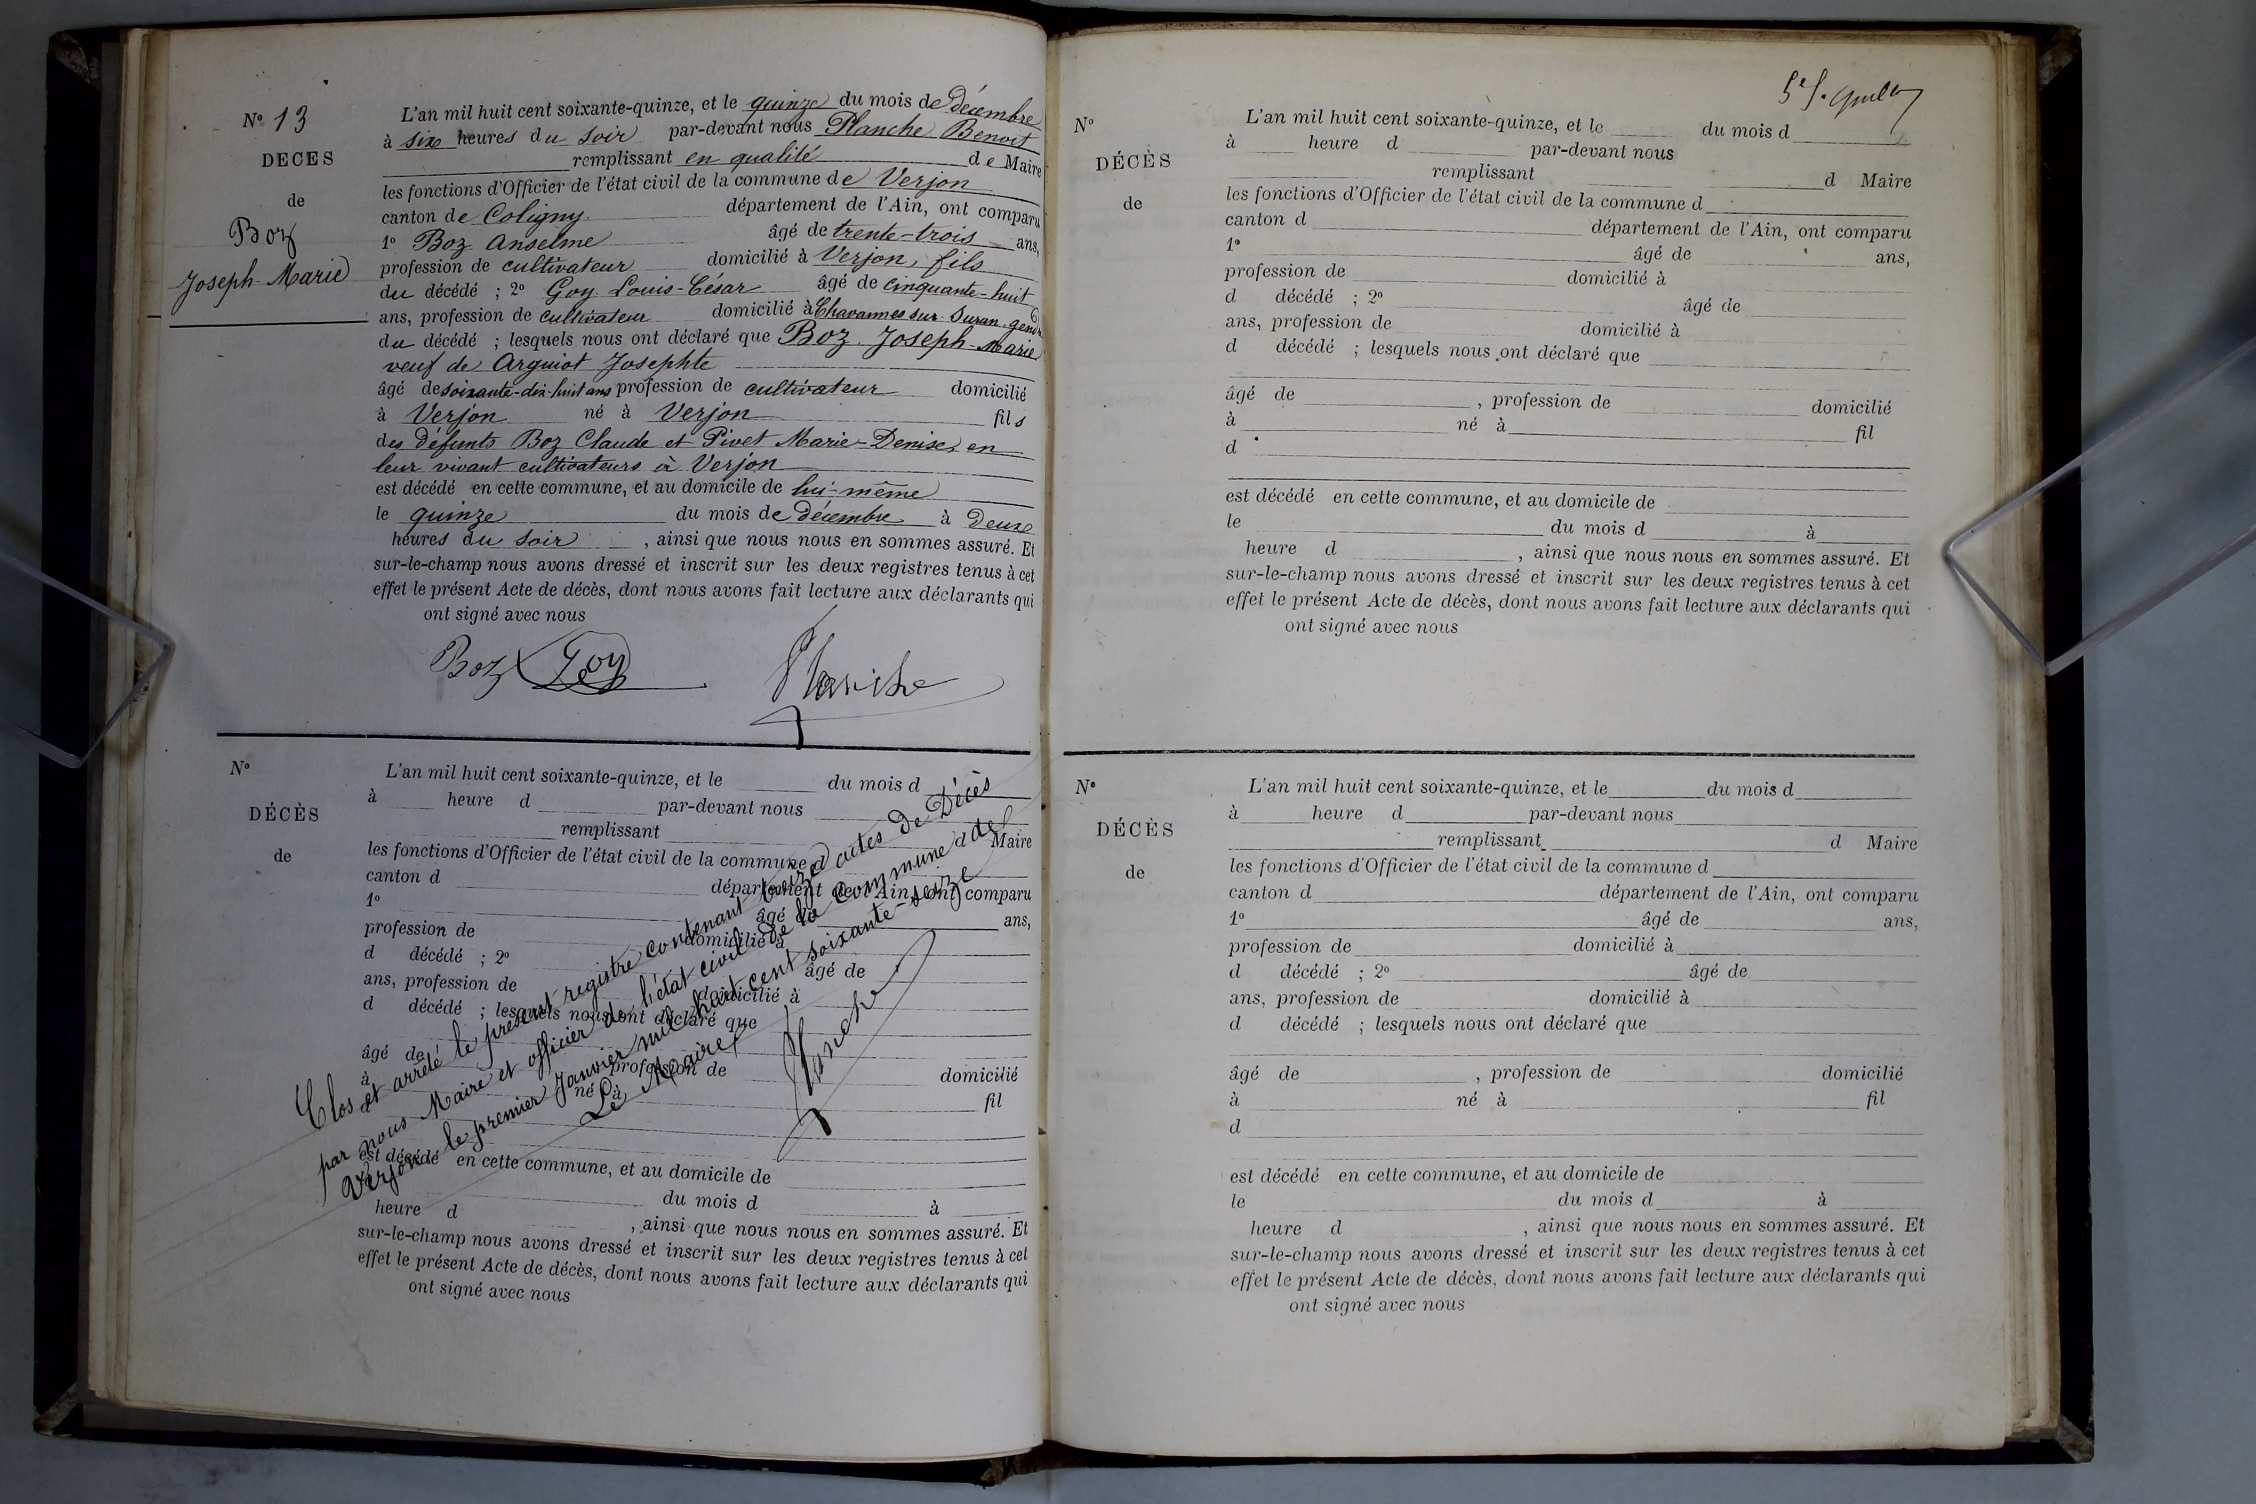 N° 13
DECES
de
Boz
Joseph-Marie
L'an mil huit cent soixante-quinze, et le quinze du mois de décembre
à six heures du soir par-devant nous Planche Benoit
remplissant en qualité de Maire
les fonctions d'Officier de l'état civil de la commune de Verjon
canton de Coligny département de l'Ain, ont comparu
1° Boz Anselme âgé de trente-trois ans,
profession de cultivateur domicilié à Verjon, fils
du décédé ; 2° Goy Louis-César âgé de cinquante-huit
ans, profession de cultivateur domicilié à Chavannes sur Suran gendre
du décédé ; lesquels nous ont déclaré que Boz Joseph-Marie
veuf de Arguiot Josephte
âgé de soixante-dix-huit ans profession de cultivateur domicilié
à Verjon né à Verjon fils
des défunts Boz Claude et Pivet Marie-Denise, en
leur vivant cultivateurs à Verjon
est décédé en cette commune, et au domicile de lui-même
le quinze du mois de décembre à Deux
heures du soir, ainsi que nous nous en sommes assuré. Et
sur-le-champ nous avons dressé et inscrit sur les deux registres tenus à cet
effet le présent Acte de décès, dont nous avons fait lecture aux déclarants qui
ont signé avec nous
Boz Goy Planche
N°
DÉCÈS
de
L'an mil huit cent soixante-quinze, et le du mois d
à heure d par-devant nous
remplissant Maire
les fonctions d'Officier de l'état civil de la commune d
canton d département de l'Ain, ont comparu
1° âgé de ans,
profession de domicilié à
d décédé ; 2° âgé de
ans, profession de domicilié à
d décédé ; lesquels nous ont déclaré que
âgé de profession de domicilié
à né à fil
d
est décédé en cette commune, et au domicile de
du mois d à
heure d , ainsi que nous nous en sommes assuré. Et
sur-le-champ nous avons dressé et inscrit sur les deux registres tenus à cet
effet le présent Acte de décès, dont nous avons fait lecture aux déclarants qui
ont signé avec nous
Clos et arrêté le présent registre contenant treize actes de Décès
par nous Maire et officier de l'état civil de la Commune de
Verjon le premier Janvier mil huit cent soixante-seize
Le Maire
Planche
N°
DÉCÈS
de
L'an mil huit cent soixante-quinze, et le du mois d
à heure d par-devant nous
remplissant d Maire
les fonctions d'Officier de l'état civil de la commune d
canton d département de l'Ain, ont comparu
1° âgé de ans,
profession de domicilié à
d décédé ; 2° âgé de
ans, profession de domicilié à
d décédé ; lesquels nous ont déclaré que
âgé de , profession de domicilié
à né à fil
d
est décédé en cette commune, et au domicile de
le du mois d à
heure d , ainsi que nous nous en sommes assuré. Et
sur-le-champ nous avons dressé et inscrit sur les deux registres tenus à cet
effet le présent Acte de décès, dont nous avons fait lecture aux déclarants qui
ont signé avec nous
N°
DÉCÈS
de
L'an mil huit cent soixante-quinze, et le du mois d
à heure d par-devant nous
remplissant d Maire
les fonctions d'Officier de l'état civil de la commune d
canton d département de l'Ain, ont comparu
1° âgé de ans,
profession de domicilié à
d décédé ; 2° âgé de
ans, profession de domicilié à
d décédé ; lesquels nous ont déclaré que
âgé de , profession de domicilié
à né à fil
d
est décédé en cette commune, et au domicile de
le du mois d à
heure d , ainsi que nous nous en sommes assuré. Et
sur-le-champ nous avons dressé et inscrit sur les deux registres tenus à cet
effet le présent Acte de décès, dont nous avons fait lecture aux déclarants qui
ont signé avec nous